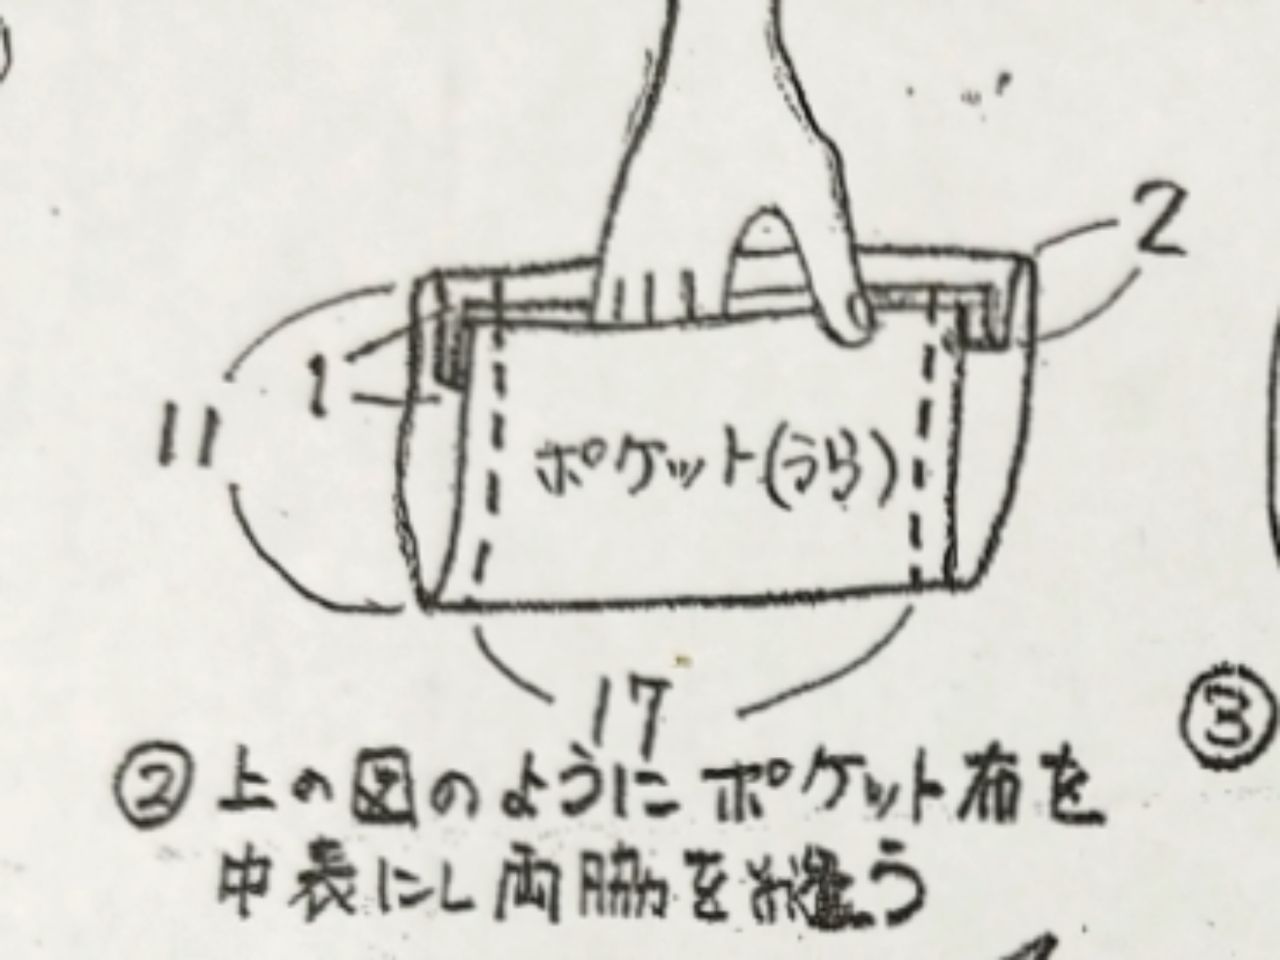 2
1
11
ポケット(うら)
17
③
②上の図のようにポケット布を
中表にし両脇を縫う